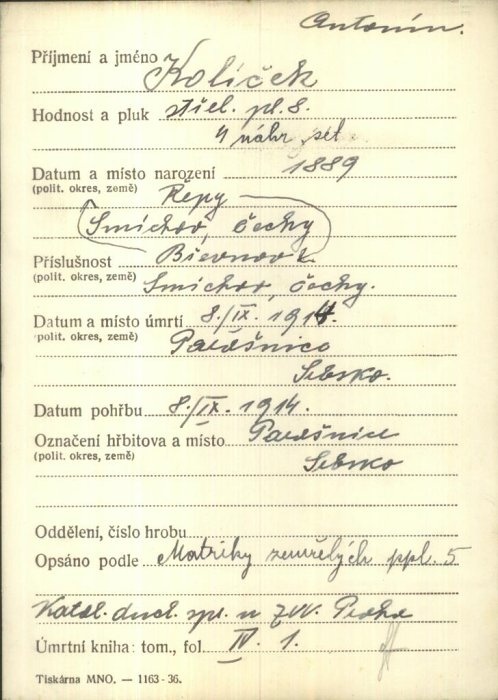 Antonín.
Příjmení a jméno Kolíček
Hodnost a pluk střel. pl. 8.
4 náhr. set.
Datum a místo narození 1889
(polit. okres, země) Řepy
Smíchov, Čechy
Příslušnost Břevnov
(polit. okres, země) Smíchov, Čechy.
Datum a místo úmrtí 8./IX. 1914
polit. okres, země) Parašnice
Srbsko.
Datum pohřbu 8./IX. 1914.
Označení hřbitova a místo Parašnice
(polit. okres, země) Srbsko
Oddělení, číslo hrobu
Opsáno podle Matriky zemřelých ppl. 5
Katol. duch. spr. u ZVV. Praha
Úmrtní kniha: tom., fol. IV. 1.
Tiskárna MNO. — 1163-36.